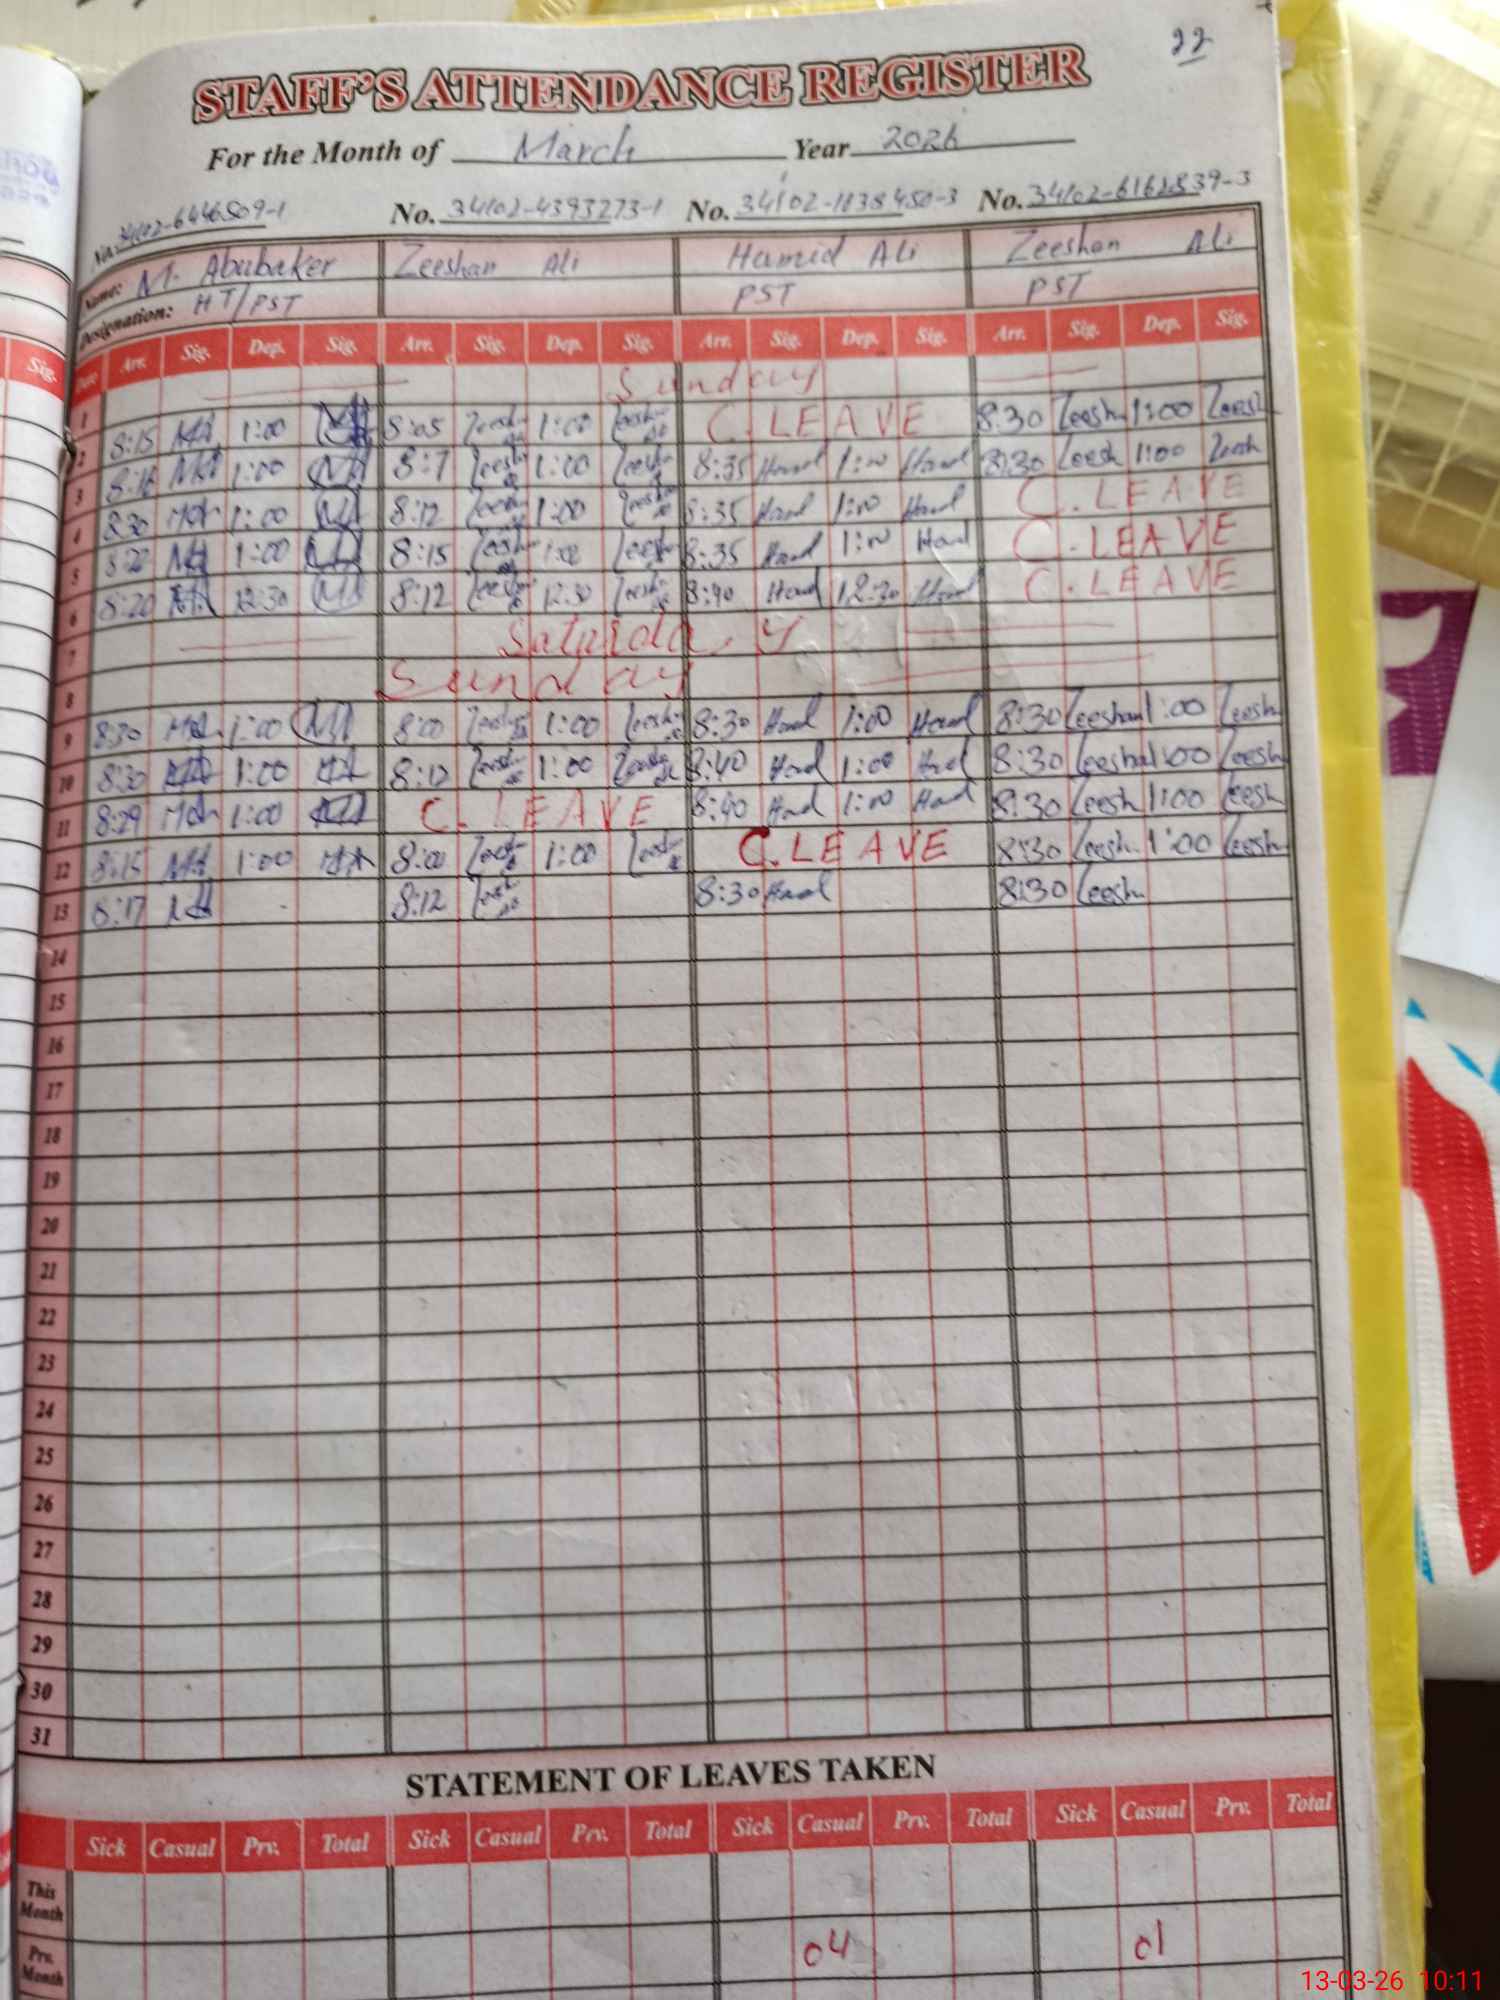 22
STAFF'S ATTENDANCE REGISTER
For the Month of March Year 2026
No. 34102-6446509-1 No. 34102-4393273-1 No. 34102-1138450-3 No. 34102-6162839-3
Name: M. Abubaker Zeeshan Ali Hamid Ali Zeeshan Ali
Designation: HT/PST PST PST
Date Arr. Sig. Dep. Sig. Arr. Sig. Dep. Sig. Arr. Sig. Dep. Sig. Arr. Sig. Dep. Sig.
1 Sunday
2 8:15 1:00 8:05 Zeesh 1:00 Zeesh C. LEAVE 8:30 Zeesh 1:00 Zeesh
3 8:16 1:00 8:7 Zeesh 1:00 Zeesh 8:35 Hamd 1:00 Hamd 8:30 Zeesh 1:00 Zeesh
4 8:30 1:00 8:12 Zeesh 1:00 Zeesh 8:35 Hamd 1:00 Hamd C. LEAVE
5 8:22 1:00 8:15 Zeesh 1:00 Zeesh 8:35 Hamd 1:00 Hamd C. LEAVE
6 8:20 12:30 8:12 Zeesh 12:30 Zeesh 8:40 Hamd 12:30 Hamd C. LEAVE
7 Saturday
8 Sunday
9 8:30 1:00 8:00 Zeesh 1:00 Zeesh 8:30 Hamd 1:00 Hamd 8:30 Zeeshan 1:00 Zeesh
10 8:30 1:00 8:12 Zeesh 1:00 Zeesh 8:40 Hamd 1:00 Hamd 8:30 Zeesha 1:00 Zeesh
11 8:29 1:00 C. LEAVE 8:40 Hamd 1:00 Hamd 8:30 Zeesh 1:00 Zeesh
12 8:15 1:00 8:00 Zeesh 1:00 Zeesh C. LEAVE 8:30 Zeesh 1:00 Zeesh
13 8:17 8:12 Zeesh 8:30 Hamd 8:30 Zeesh
14
15
16
17
18
19
20
21
22
23
24
25
26
27
28
29
30
31
STATEMENT OF LEAVES TAKEN
Sick Casual Prv. Total Sick Casual Prv. Total Sick Casual Prv. Total Sick Casual Prv. Total
This Month
Prv. Month 04 01
13-03-26 10:11